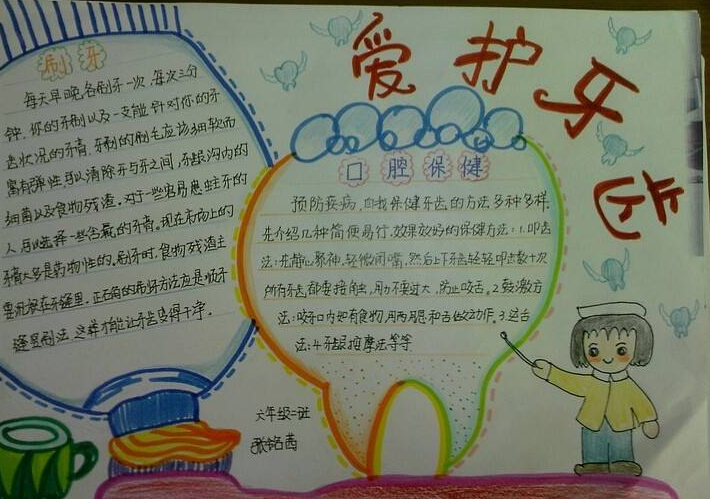 爱护牙齿
刷牙
每天早晚各刷牙一次,每次三分
钟,你的牙刷以及一支能针对你的牙
齿状况的牙膏,牙刷的刷毛应该细软而
富有弹性,可以清除牙与牙之间,牙龈沟内的
细菌以及食物残渣。对于一些容易患蛀牙的
人,可以选择一些含氟的牙膏。现在市场上的
牙膏大多是药物性的。刷牙时,食物残渣主
要沉积在牙缝里,正确的刷牙方法应是顺牙
缝里刷法,这样才能让牙齿变得干净。
口腔保健
预防疾病,自我保健牙齿的方法多种多样
先介绍几种简便易行,效果放好的保健方法:1.叩齿
法:先静心聚神,轻微闭嘴,然后上下牙齿轻轻叩数十次
所有牙齿都要接触,用力不要过大,防止咬舌。2.鼓漱方
法:咬牙口内如有食物,用两腮和舌做动作。3.运舌
法:4.牙龈按摩法等等
六年级一班
张铭茜